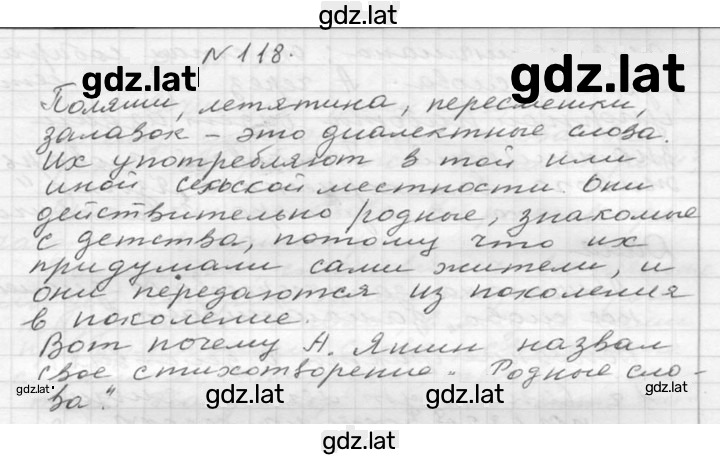 gdz.lat
№118.
gdz.lat
gdz.lat
Поляши, летятина, пересмешки,
залавок – это диалектные слова.
Их употребляют в той или
иной сельской местности. Они
действительно родные, знакомые
с детства, потому что их
придумали сами жители, и
они передаются из поколения
в поколение.
Вот почему А. Яшин назвал
свое стихотворение „Родные сло-
ва".
gdz.lat
gdz.lat
gdz.lat
gdz.lat
gdz.lat